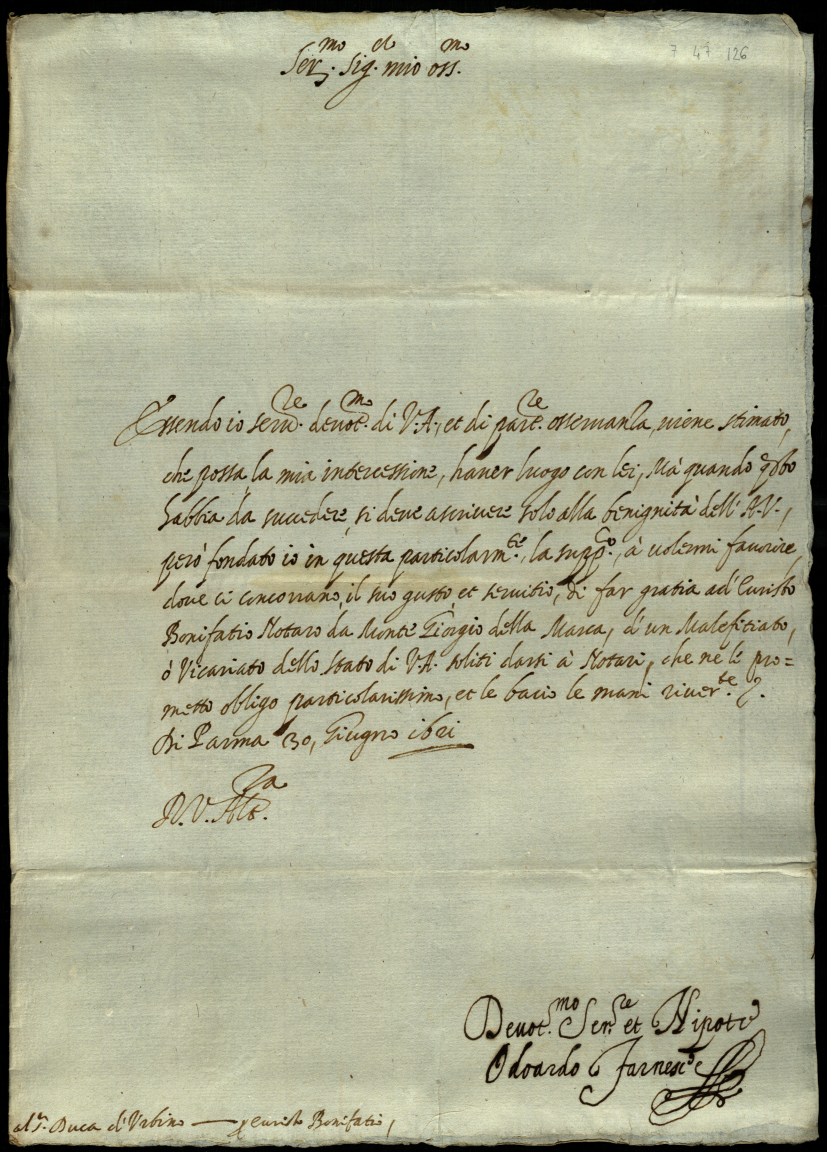 7 47 126
Ser.mo Sig.r mio oss.mo
Essendo io ser.re devot.mo di V.A., et di part.re osservanza, viene stimato,
che possa la mia intercessione, haver luogo con lei, Mà quando q.sto
habbia da succedere, si deve ascrivere solo alla benignità dell' A.V.,
però fondato io in questa particolarm.te, la supp.co, à volermi favorire,
dove ci concorrano, il suo gusto, et servitio, di far gratia ad Evristo
Bonifatio Notaro da Monte Giorgio della Marca, d'un Malefitiato,
ò Vicariato dello stato di V.A. soliti darsi à Notari, che ne le pro=
metto obligo particolarissimo, et le bacio le mani river.te
Di Parma 30, Giugno 1621
D. V. Alt.za
Devot.mo Ser.re et Nipote
Odoardo Farnese
Al S.r Duca d'Urbino — p Evristo Bonifatio,